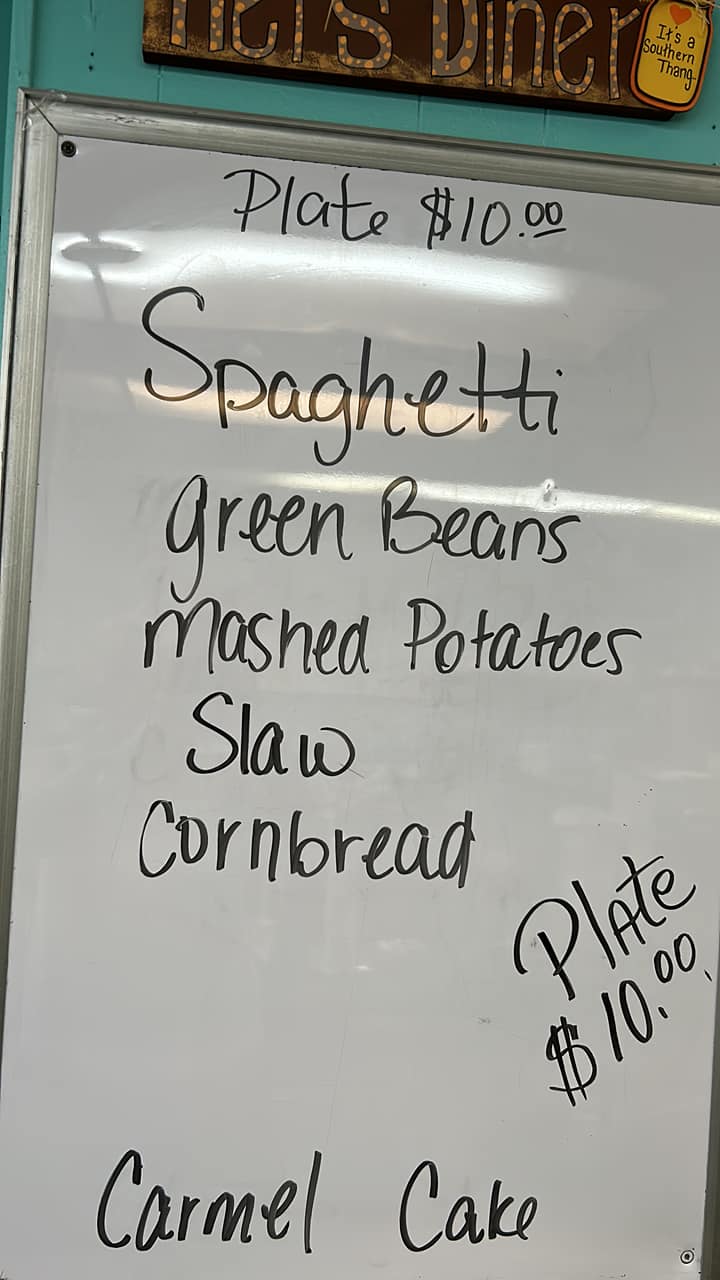 Diner
It's a
Southern
Thang
Plate $10.00
Spaghetti
green Beans
mashed Potatoes
Slaw
Cornbread
Plate
$10.00
Carmel Cake